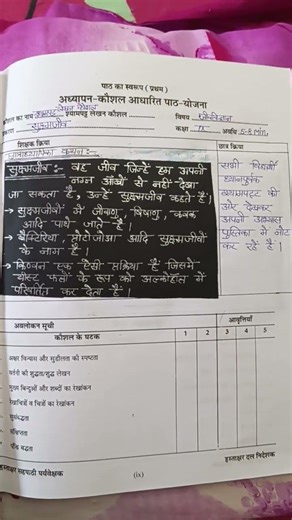 पाठ का स्वरूप ( प्रथम )
अध्यापन-कौशल आधारित पाठ-योजना
कौशल का नाम श्यामपट्ट लेखन कौशल विषय जीव विज्ञान
सूक्ष्मजीव कक्षा IX अवधि 5-8 Min
शिक्षक क्रिया छात्र क्रिया
सूक्ष्मजीव :- वह जीव जिन्हें हम अपनी
नग्न आँखों से नहीं देखा
जा सकता है, उन्हें सूक्ष्मजीव कहते हैं।
→ सूक्ष्मजीवों में जीवाणु, विषाणु, कवक
आदि पाये जाते हैं।
→ बैक्टिरिया, प्रोटोजोआ आदि सूक्ष्मजीवों
के भाग हैं।
→ किण्वन एक ऐसी प्रक्रिया है जिसमें
यीस्ट फलों के रस को अल्कोहल में
परिवर्तित कर देता है।
सभी विद्यार्थी
ध्यानपूर्वक
श्यामपट्ट की
ओर देखकर
अपनी अभ्यास
पुस्तिका में नोट
कर रहे हैं।
अवलोकन सूची आवृत्तियाँ
कौशल के घटक 1 2 3 4 5
अक्षर विन्यास और सुडौलता की स्पष्टता
वर्तनी की शुद्धता/शुद्ध लेखन
मुख्य बिन्दुओं और शब्दों का रेखांकन
रेखाचित्रों व चित्रों का रेखांकन
सुसंबद्धता
संक्षिप्तता
पंक्ति बद्धता
हस्ताक्षर सहपाठी पर्यवेक्षक हस्ताक्षर दल निदेशक
(ix)